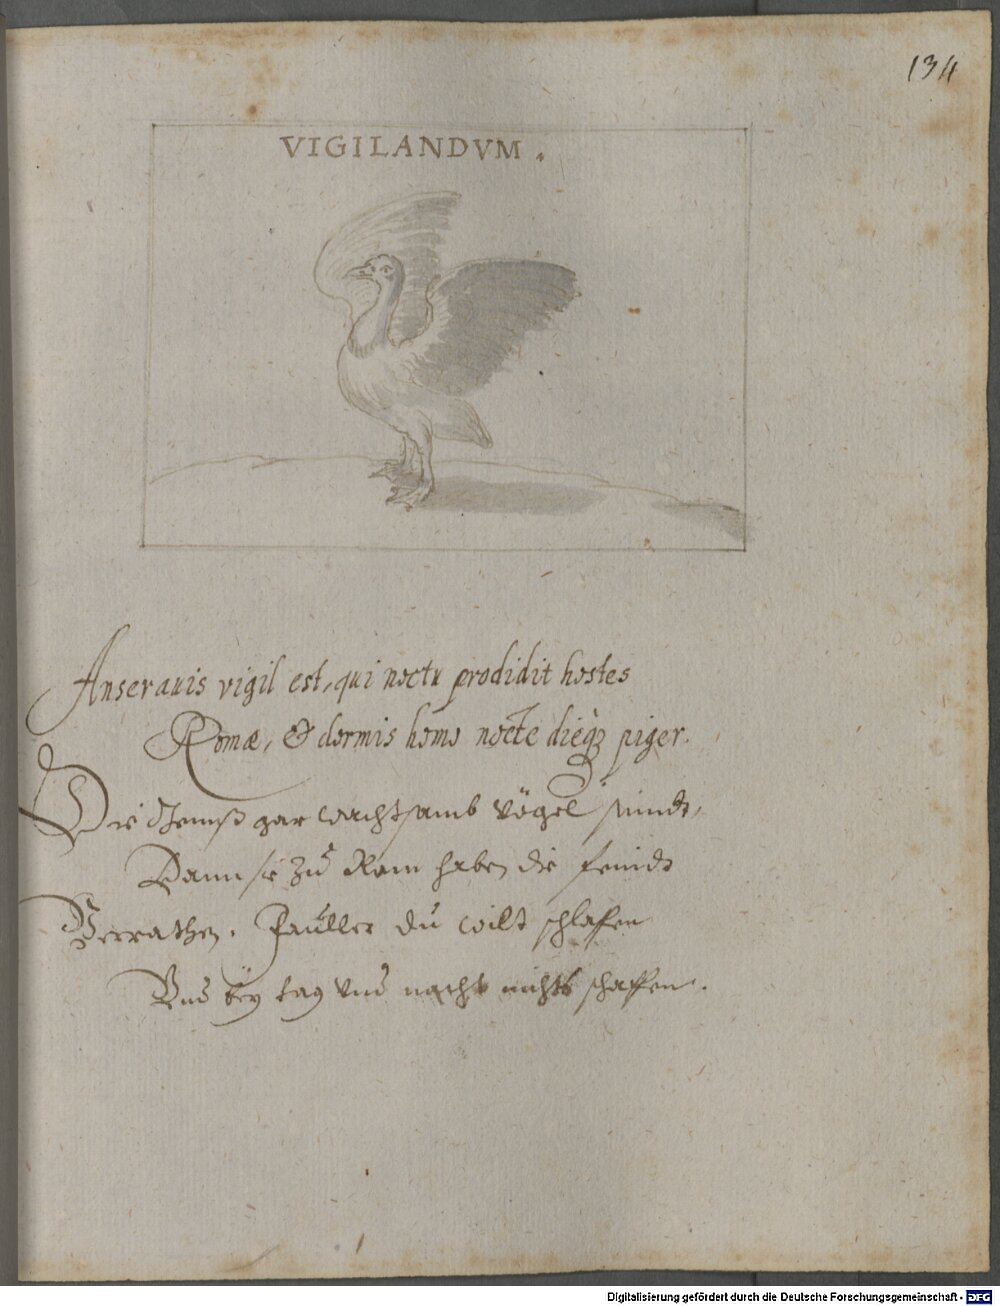 134
VIGILANDVM.
Anser auis vigil est, qui noctu prodidit hostes
Romæ, & dormis homo nocte dieq̀ꝫ piger.
Die Genß gar wachtsamb Vögel seindt,
Dann sie zu Rom haben die feindt
Verrathen. Fauller du wilt schlaffen
Vnd beÿ tag vnd nacht nichts schaffen.
Digitalisierung gefördert durch die Deutsche Forschungsgemeinschaft - DFG